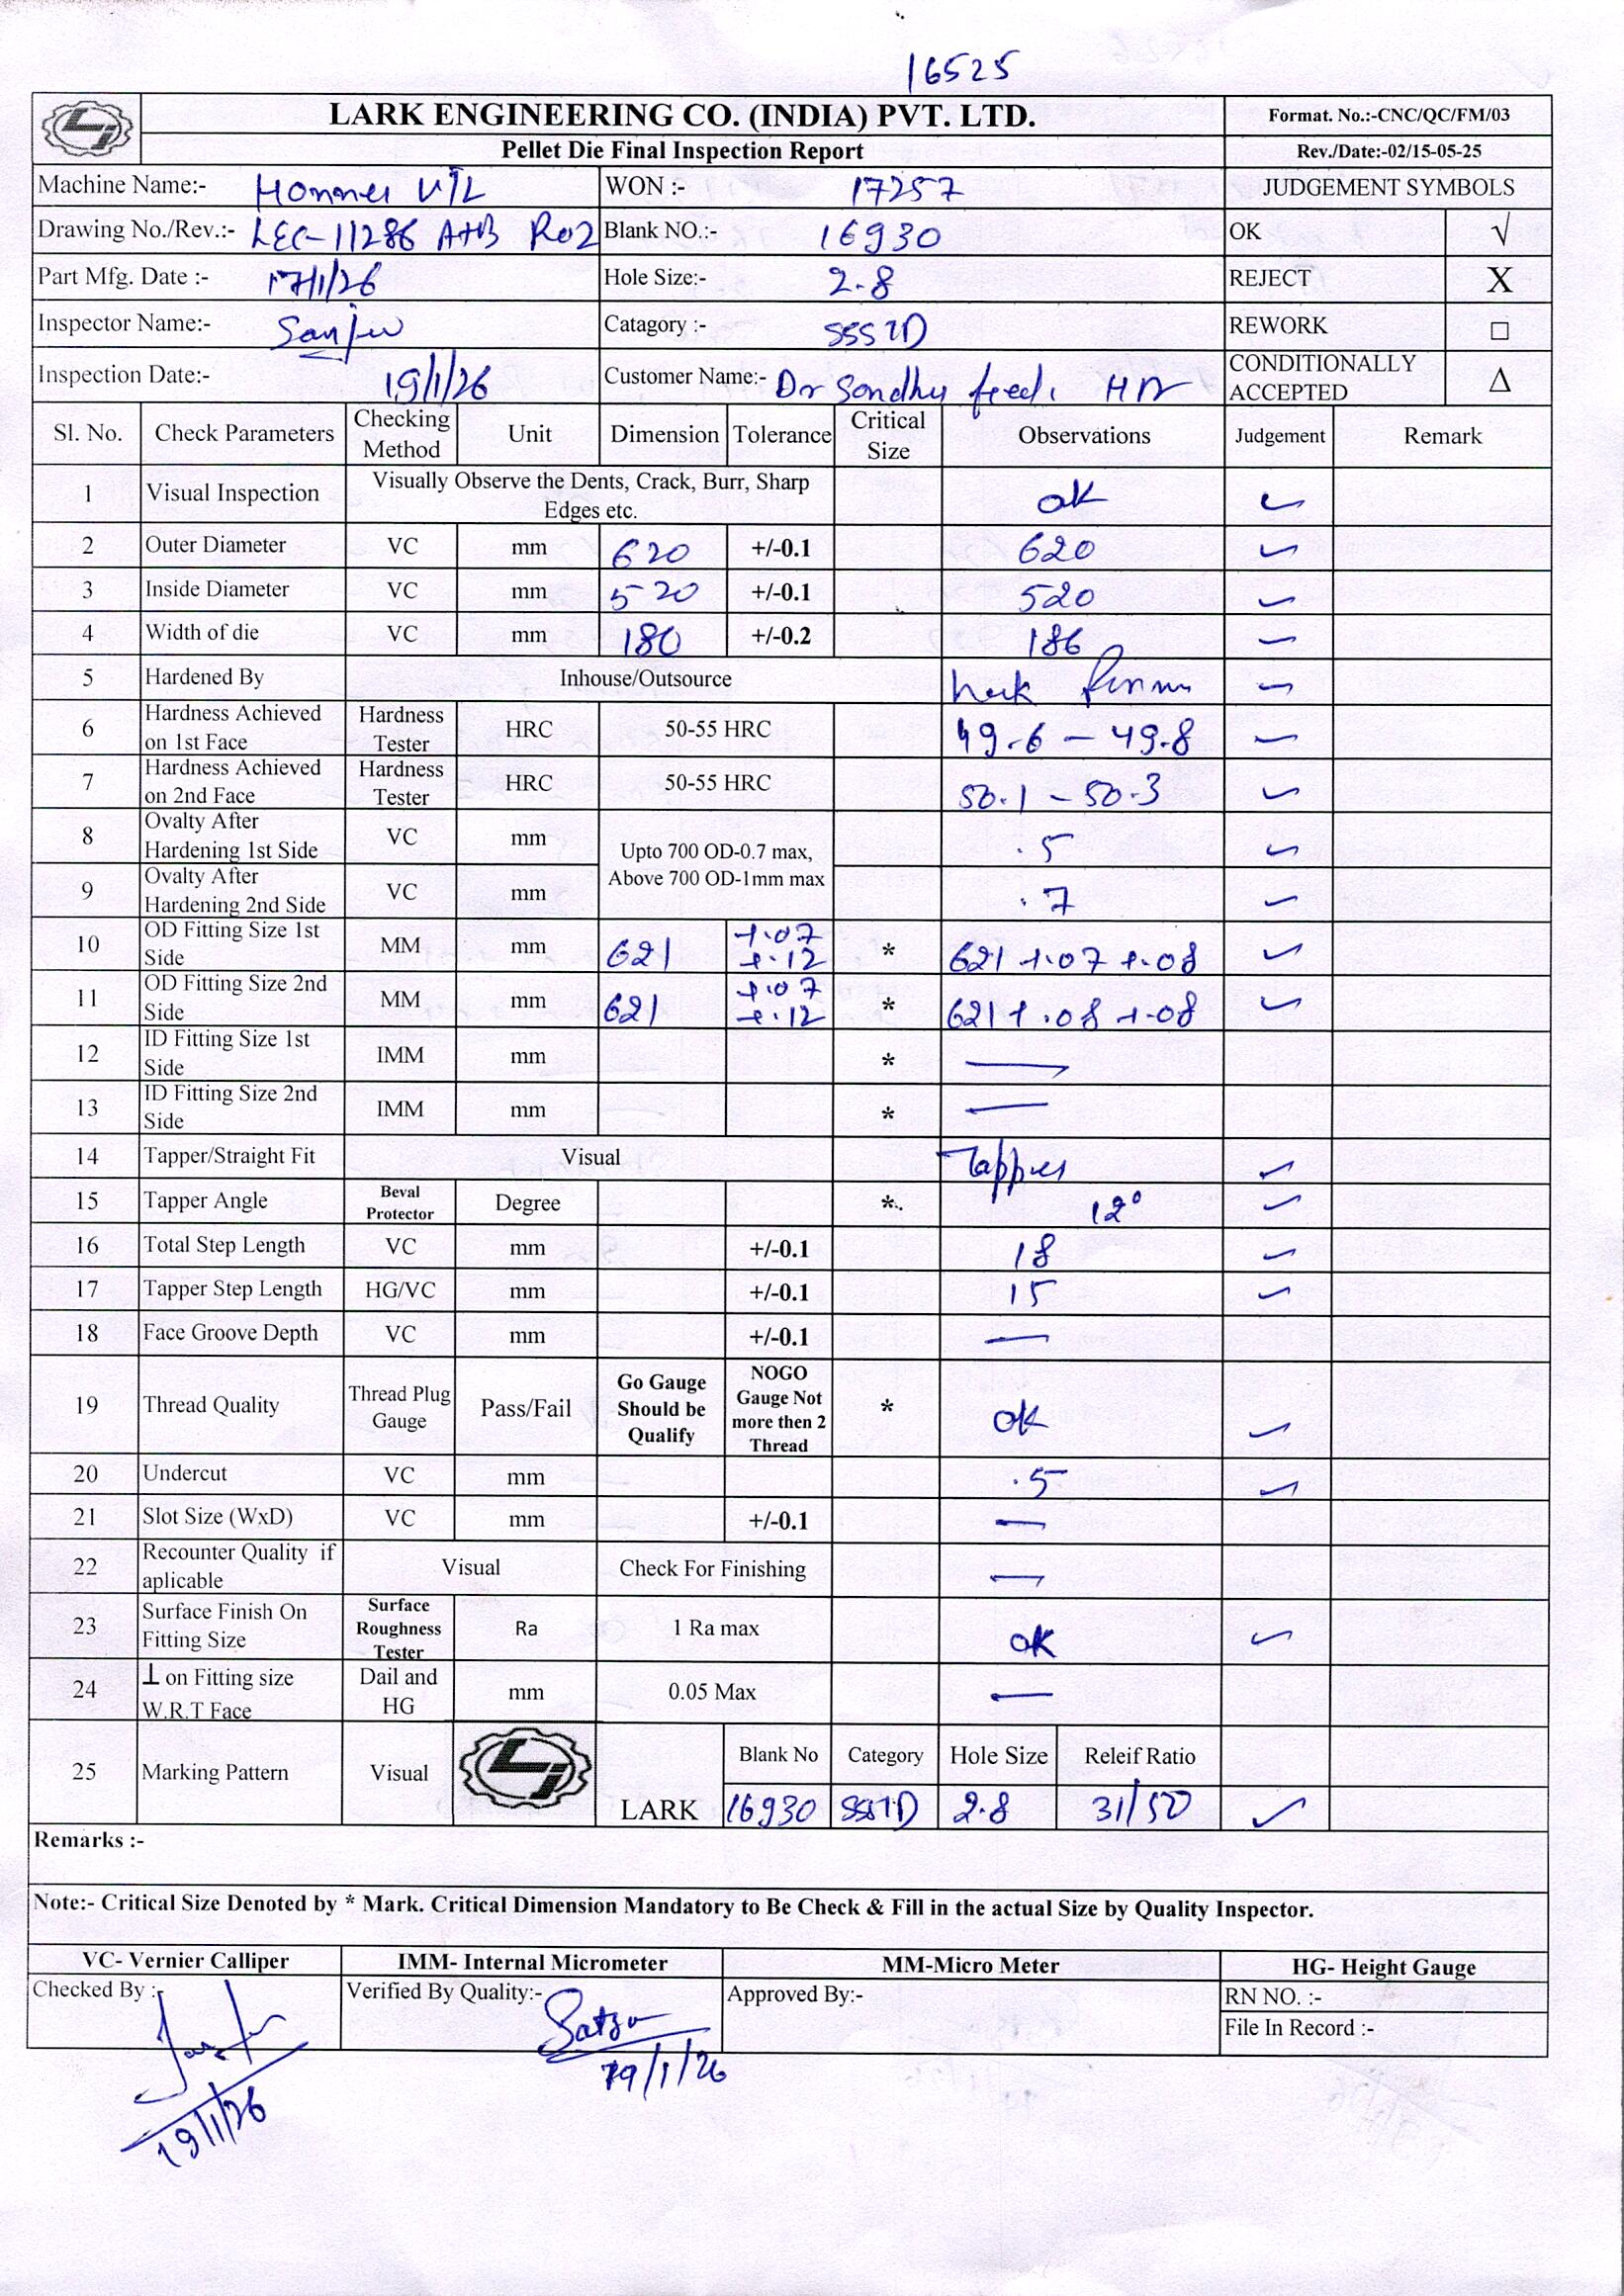 16525
LARK ENGINEERING CO. (INDIA) PVT. LTD. Format. No.:-CNC/QC/FM/03
Pellet Die Final Inspection Report Rev./Date:-02/15-05-25
Machine Name:- VTL WON :- 17257 JUDGEMENT SYMBOLS
Drawing No./Rev.:- LEC-11286 A+B R02 Blank NO.:- 16930 OK √
Part Mfg. Date :- 17/1/26 Hole Size:- 2.8 REJECT X
Inspector Name:- Sanjiv Catagory :- REWORK □
Inspection Date:- 19/1/26 Customer Name:- Dr Sondhy feed. CONDITIONALLY ACCEPTED Δ
Sl. No. Check Parameters Checking Method Unit Dimension Tolerance Critical Size Observations Judgement Remark
1 Visual Inspection Visually Observe the Dents, Crack, Burr, Sharp Edges etc. ok ✓
2 Outer Diameter VC mm 620 +/-0.1 620 ✓
3 Inside Diameter VC mm 520 +/-0.1 520 ✓
4 Width of die VC mm 180 +/-0.2 ✓
5 Hardened By Inhouse/Outsource ✓
6 Hardness Achieved on 1st Face Hardness Tester HRC 50-55 HRC 49.6 - 49.8 ✓
7 Hardness Achieved on 2nd Face Hardness Tester HRC 50-55 HRC 50.1 - 50.3 ✓
8 Ovalty After Hardening 1st Side VC mm Upto 700 OD-0.7 max, Above 700 OD-1mm max .5 ✓
9 Ovalty After Hardening 2nd Side VC mm .7 ✓
10 OD Fitting Size 1st Side MM mm 621 +.07 +.12 * 621 +.07 +.08 ✓
11 OD Fitting Size 2nd Side MM mm 621 +.07 +.12 * 621 +.08 +.08 ✓
12 ID Fitting Size 1st Side IMM mm * —
13 ID Fitting Size 2nd Side IMM mm * —
14 Tapper/Straight Fit Visual Tapper ✓
15 Tapper Angle Beval Protector Degree * 12° ✓
16 Total Step Length VC mm +/-0.1 18 ✓
17 Tapper Step Length HG/VC mm +/-0.1 15 ✓
18 Face Groove Depth VC mm +/-0.1 —
19 Thread Quality Thread Plug Gauge Pass/Fail Go Gauge Should be Qualify NOGO Gauge Not more then 2 Thread * ok ✓
20 Undercut VC mm .5 ✓
21 Slot Size (WxD) VC mm +/-0.1 —
22 Recounter Quality if aplicable Visual Check For Finishing —
23 Surface Finish On Fitting Size Surface Roughness Tester Ra 1 Ra max ok ✓
24 ⊥ on Fitting size W.R.T Face Dail and HG mm 0.05 Max —
25 Marking Pattern Visual LARK Blank No Category Hole Size Releif Ratio
16930 2.8 31/50 ✓
Remarks :-
Note:- Critical Size Denoted by * Mark. Critical Dimension Mandatory to Be Check & Fill in the actual Size by Quality Inspector.
VC- Vernier Calliper IMM- Internal Micrometer MM-Micro Meter HG- Height Gauge
Checked By :- Verified By Quality:- Approved By:- RN NO. :-
File In Record :-
19/1/26
19/1/26